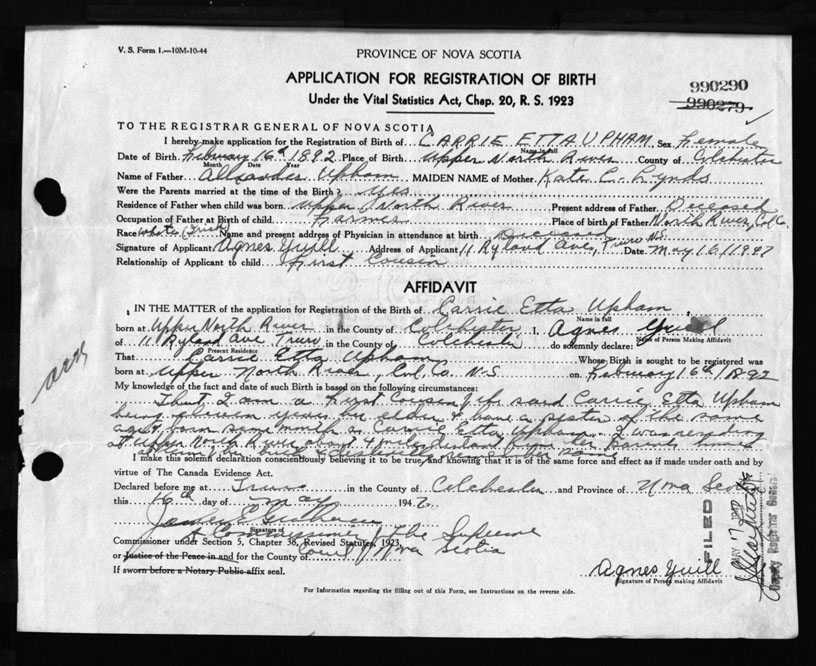 V. S. Form 1.—10M-10-44
PROVINCE OF NOVA SCOTIA
APPLICATION FOR REGISTRATION OF BIRTH
Under the Vital Statistics Act, Chap. 20, R. S. 1923
990290
990279
TO THE REGISTRAR GENERAL OF NOVA SCOTIA
I hereby make application for the Registration of Birth of CARRIE ETTA UPHAM Sex Female
Name in full
Date of Birth February 16th 1892 Place of Birth Upper North River County of Colchester
Month Date Year
Name of Father Upham MAIDEN NAME of Mother Kate C. Lynds
Were the Parents married at the time of the Birth? Yes
Residence of Father when child was born Upper North River Present address of Father Deceased
Occupation of Father at Birth of child Farmer Place of birth of Father North River, Col Co.
Race White (Irish) Name and present address of Physician in attendance at birth Deceased
Signature of Applicant Agnes Yuill Address of Applicant 11 Ryland Ave, Truro N.S. Date May 16/1947
Relationship of Applicant to child First Cousin
AFFIDAVIT
IN THE MATTER of the application for Registration of the Birth of Carrie Etta Upham
Name in full
born at Upper North River in the County of Colchester I, Agnes Yuill
Name of Person Making Affidavit
of 11 Ryland Ave Truro in the County of Colchester do solemnly declare:
Present Residence
That Carrie Etta Upham Whose Birth is sought to be registered was
born at Upper North River, Col. Co. N.S. on February 16th/1892
My knowledge of the fact and date of such Birth is based on the following circumstances:
That I am a first cousin of the said Carrie Etta Upham
being eleven years her elder & have a sister of the same
age & born same month as Carrie Etta Upham. I was residing
at Upper North River about 4 miles distant from her parents home
I make this solemn declaration conscientiously believing it to be true, and knowing that it is of the same force and effect as if made under oath and by
virtue of The Canada Evidence Act.
Declared before me at Truro in the County of Colchester and Province of Nova Scotia
this 16th day of May 194
Signature of
A Commissioner of The Supreme
Commissioner under Section 5, Chapter 38, Revised Statutes, 1923,
or Justice of the Peace in and for the County of Court of Nova Scotia
If sworn before a Notary Public affix seal.
Agnes Yuill
Signature of Person making Affidavit
For Information regarding the filling out of this Form, see Instructions on the reverse side.
FILED
Deputy Registrar General